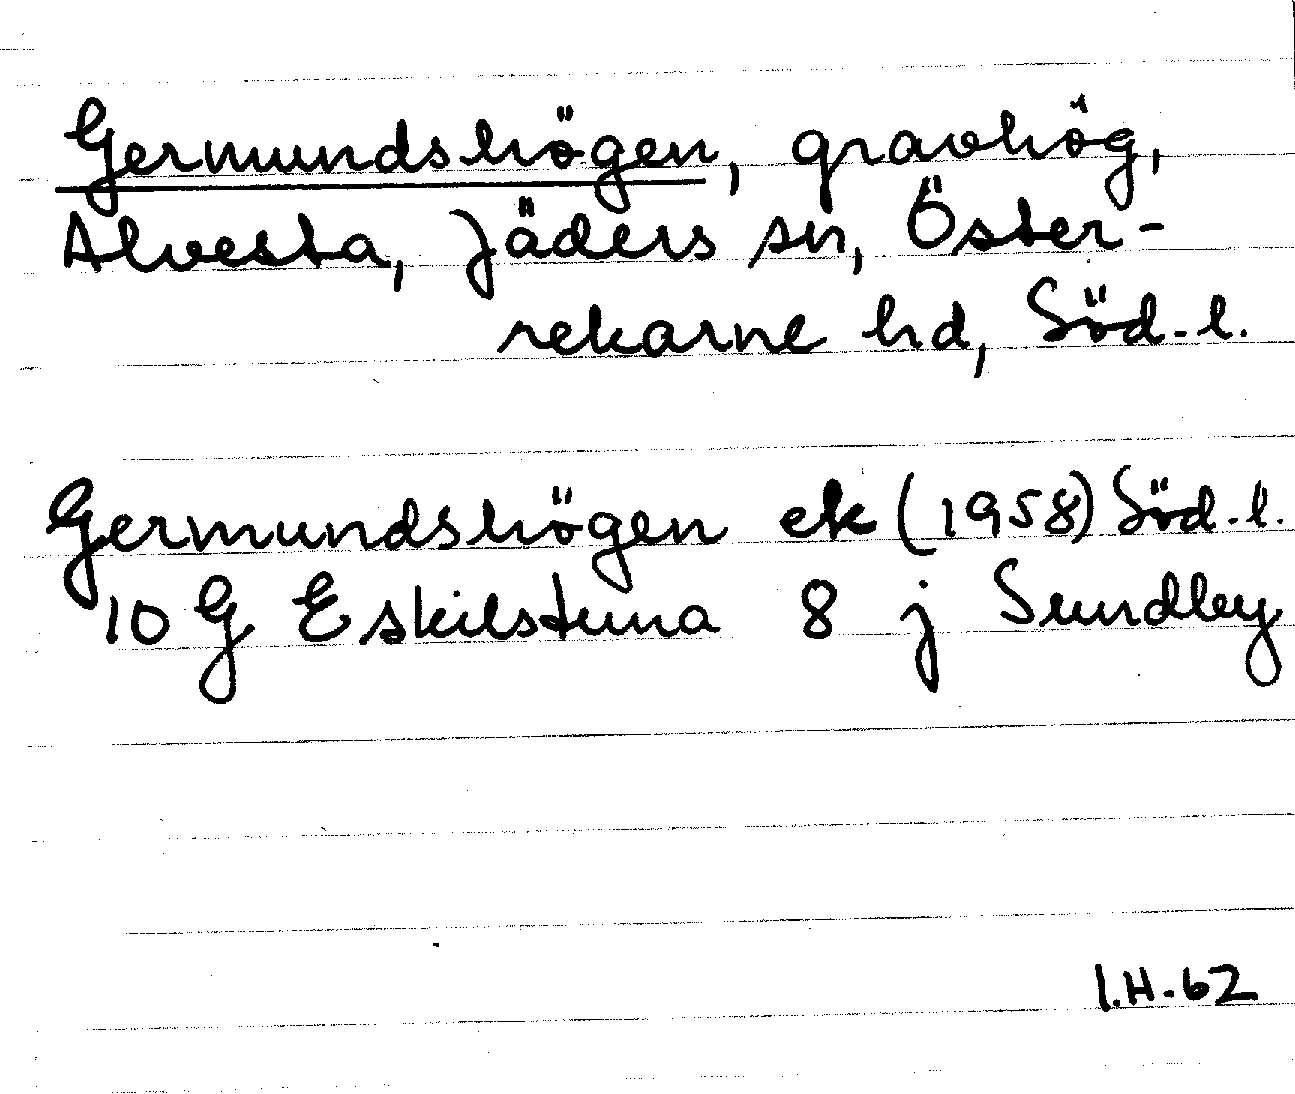 Germundshögen, gravhög,
Alvesta, Jäders sn, Öster-
rekarne hd, Söd-l.
Germundshögen ek (1958) Söd.l.
10 G Eskilstuna 8 j Sundby
I.H.62